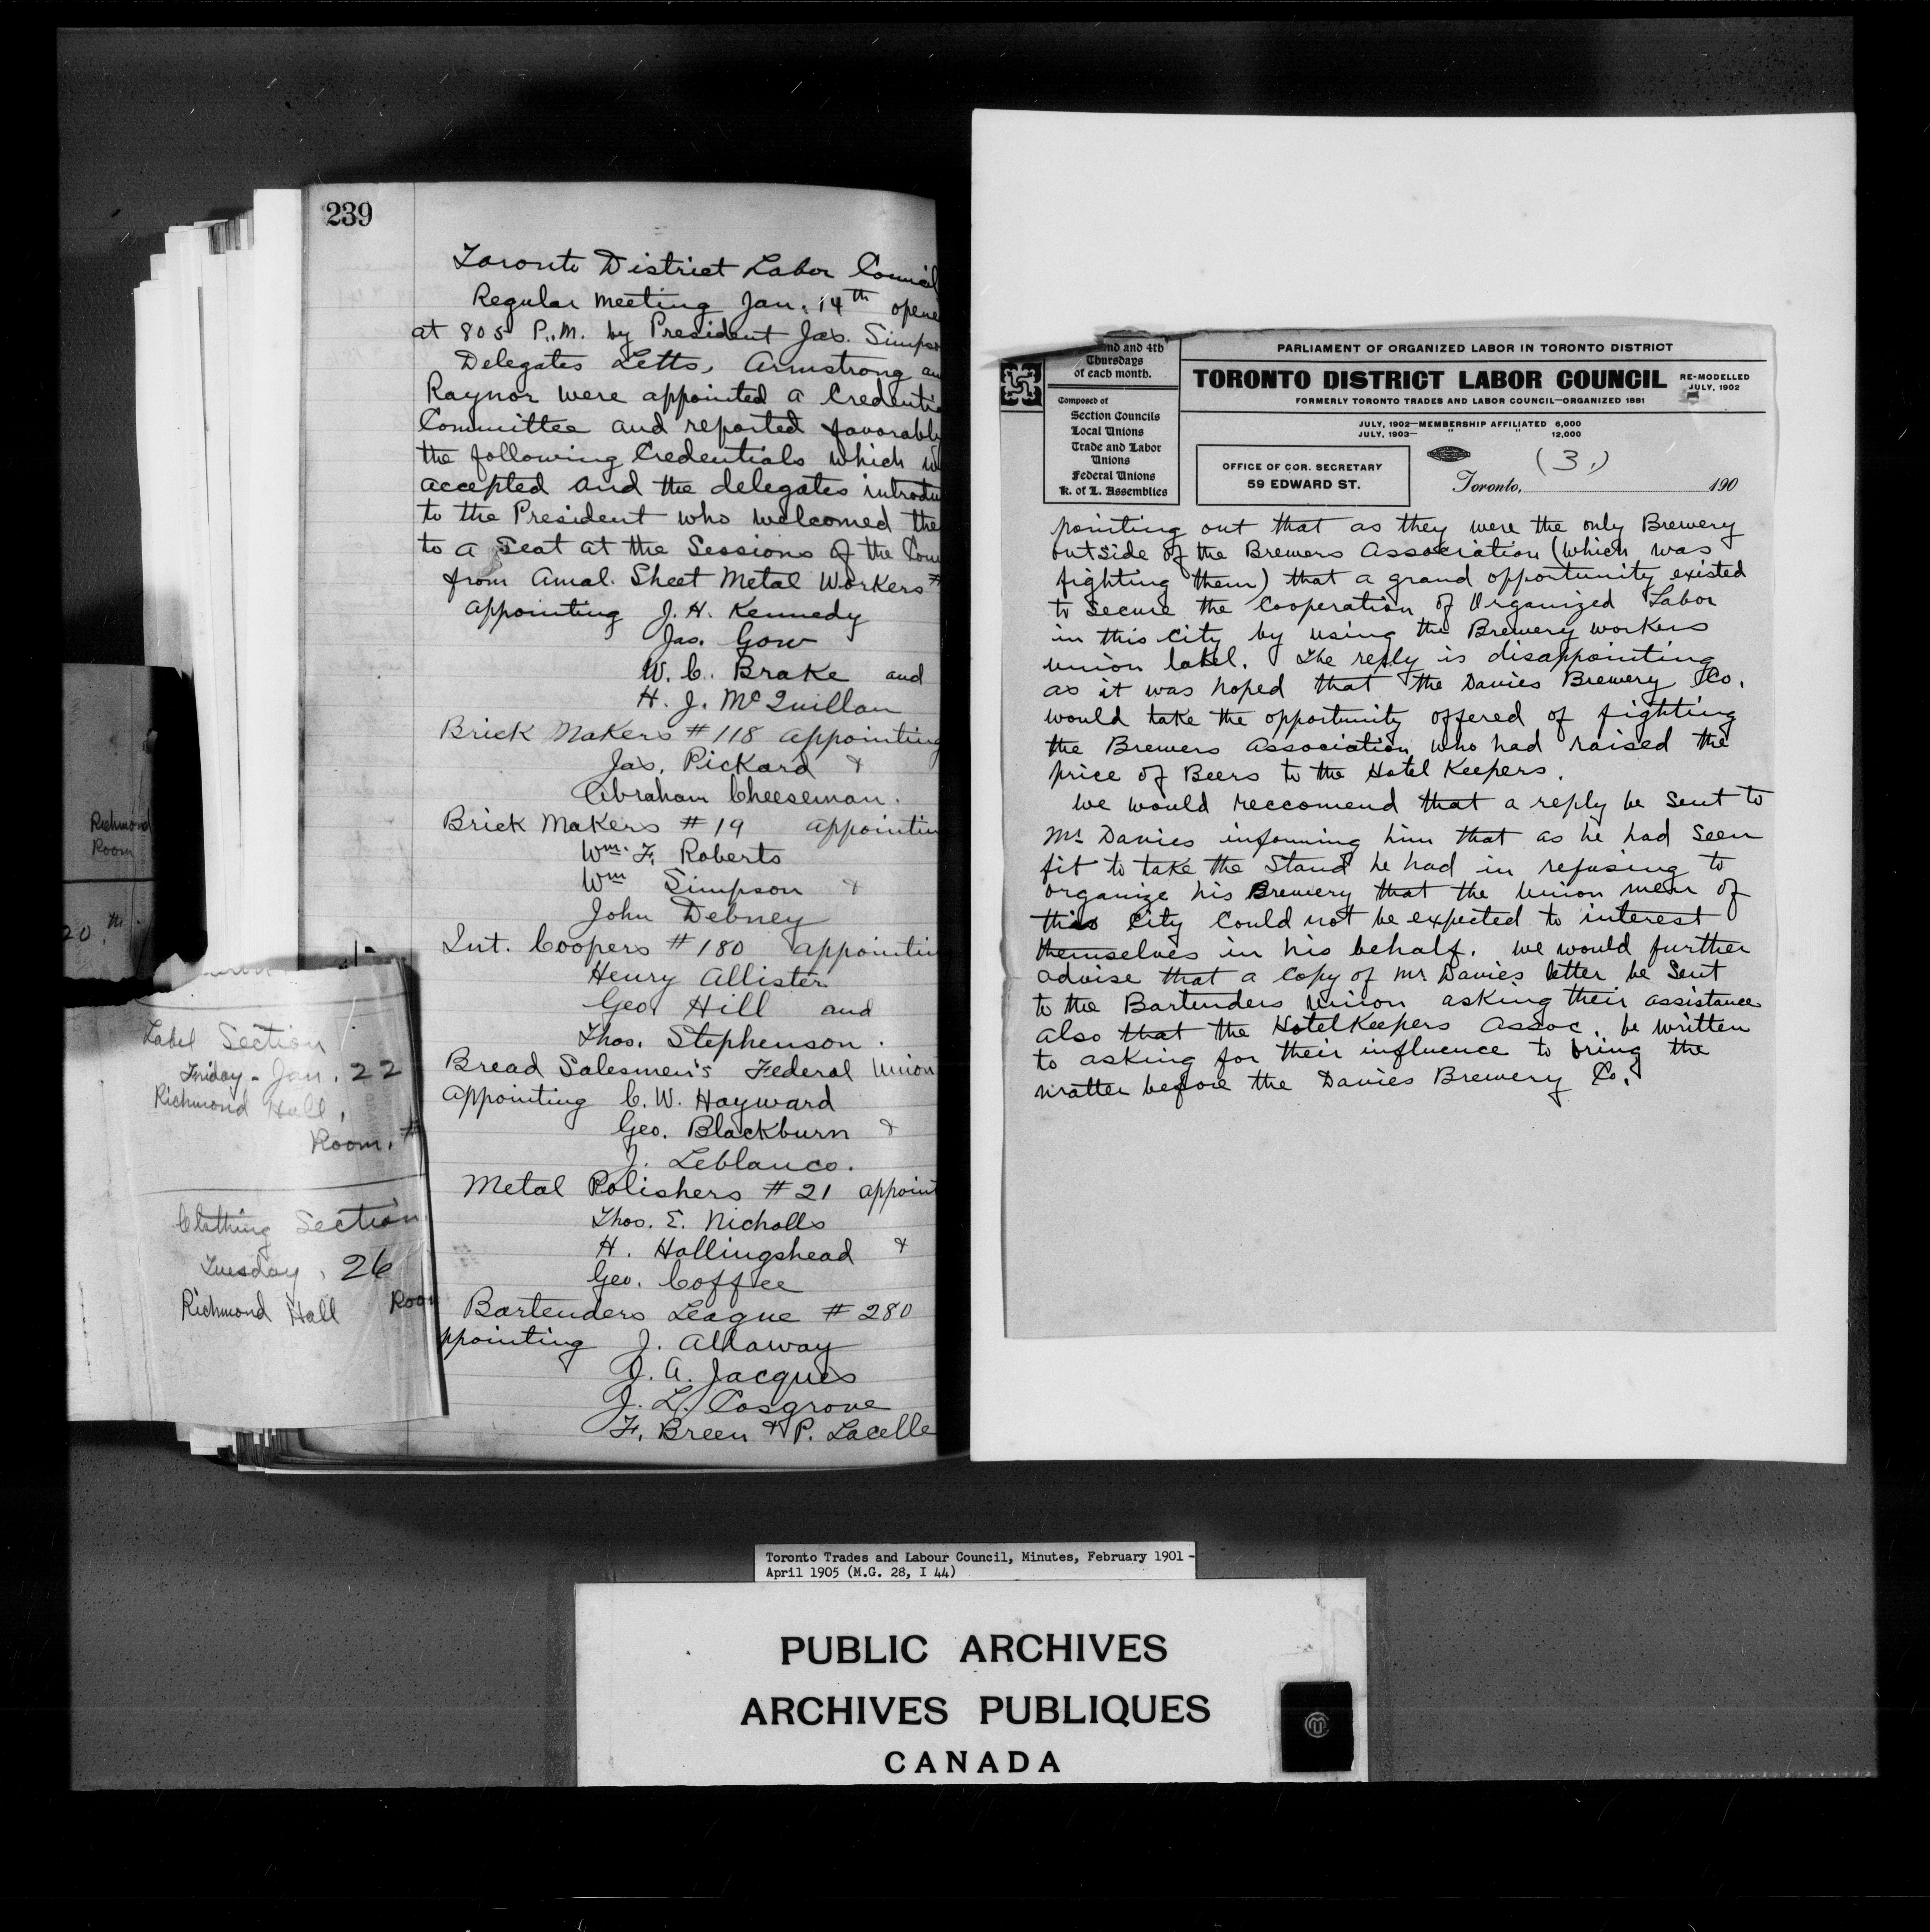 239
Toronto District Labor Council
Regular Meeting Jan. 14th opene
at 805 P.M. by President Jas. Simpso
Delegates Letts, Armstrong an
Raynor were appointed a Credentia
Committee and reported favorably
the following Credentials which w
accepted and the delegates introdu
to the President who welcomed the
to a Seat at the Sessions of the Coun
from Amal. Sheet Metal Workers #
appointing J. H. Kennedy
Jas. Gow
W. C. Brake and
H. J. McQuillan
Brick Makers #118 appointing
Jas. Pickard &
Abraham Cheeseman.
Brick Makers #19 appointin
Wm. F. Roberts
Wm Simpson &
John Debney
Int. Coopers #180 appointin
Henry Allister
Geo Hill and
Thos. Stephenson.
Bread Salesmen's Federal Union
appointing C. W. Hayward
Geo. Blackburn &
J. Leblanco.
Metal Polishers #21 appoint
Thos. E. Nicholls
H. Hollingshead &
Geo. Coffee
Bartenders League #280
ppointing J. Allaway
J. A. Jacques
J. L. Cosgrove
F. Breen & P. Lacelle
Richmond
Room
20th.
Label Section
Friday - Jan. 22
Richmond Hall,
Room. #
Clothing Section
Tuesday, 26
Richmond Hall Room
nd and 4th
Thursdays
of each month.
Composed of
Section Councils
Local Unions
Trade and Labor
Unions
Federal Unions
K. of L. Assemblies
PARLIAMENT OF ORGANIZED LABOR IN TORONTO DISTRICT
TORONTO DISTRICT LABOR COUNCIL
RE-MODELLED
JULY, 1902
FORMERLY TORONTO TRADES AND LABOR COUNCIL—ORGANIZED 1881
JULY, 1902—MEMBERSHIP AFFILIATED 6,000
JULY, 1903— " " 12,000
OFFICE OF COR. SECRETARY
59 EDWARD ST.
(3.)
Toronto, 190
pointing out that as they were the only Brewery
outside of the Brewers Association (which was
fighting them) that a grand opportunity existed
to secure the Cooperation of Organized Labor
in this City by using the Brewery workers
union label. The reply is disappointing
as it was hoped that the Davies Brewery Co.
would take the opportunity offered of fighting
the Brewers Association who had raised the
price of Beers to the Hotel Keepers.
We would reccomend that a reply be sent to
Mr Davies informing him that as he had seen
fit to take the Stand he had in refusing to
organize his Brewery that the union men of
this City Could not be expected to interest
themselves in his behalf. We would further
advise that a Copy of Mr. Davies letter be Sent
to the Bartenders union asking their assistance
also that the HotelKeepers Assoc. be written
to asking for their influence to bring the
matter before the Davies Brewery Co.
Toronto Trades and Labour Council, Minutes, February 1901 -
April 1905 (M.G. 28, I 44)
PUBLIC ARCHIVES
ARCHIVES PUBLIQUES
CANADA